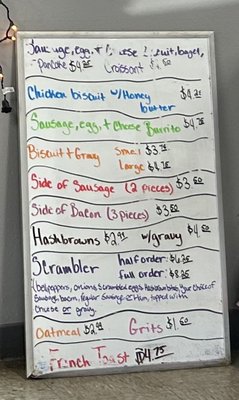 Sausage, egg, + cheese biscuit, bagel,
pancake Croissant
Chicken biscuit w/Honey
butter
Sausage, egg, + Cheese Burrito $4.75
Biscuit + Gravy Small $3.75
large
Side of Sausage (2 pieces) $3.50
Side of Bacon (3 pieces) $3.50
Hashbrowns w/gravy $4.50
Scrambler half order: $6.25
full order: $8.25
(bell peppers, onions, scrambled eggs, hashbrowns, your choice of
Sausage, bacon, regular Sausage or Ham, topped with
cheese or gravy.
Oatmeal Grits
French Toast $4.75